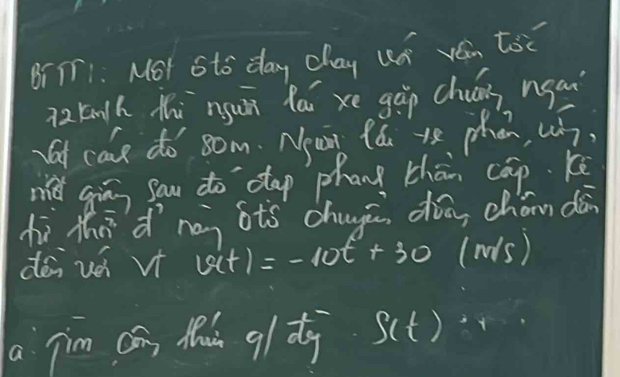 BTT1: Một ôtô đang chạy với vận tốc
72km/h thì người lái xe gặp chướng ngại
vật cách đó 80m. Người lái xe phản ứng,
một giây sau đó đạp phanh khẩn cấp. Kể
từ thời đ' này ôtô chuyển động chậm dần
đều với vt v(t) = -10t + 30 (m/s)
a. Tìm công thức q/ đg S(t)